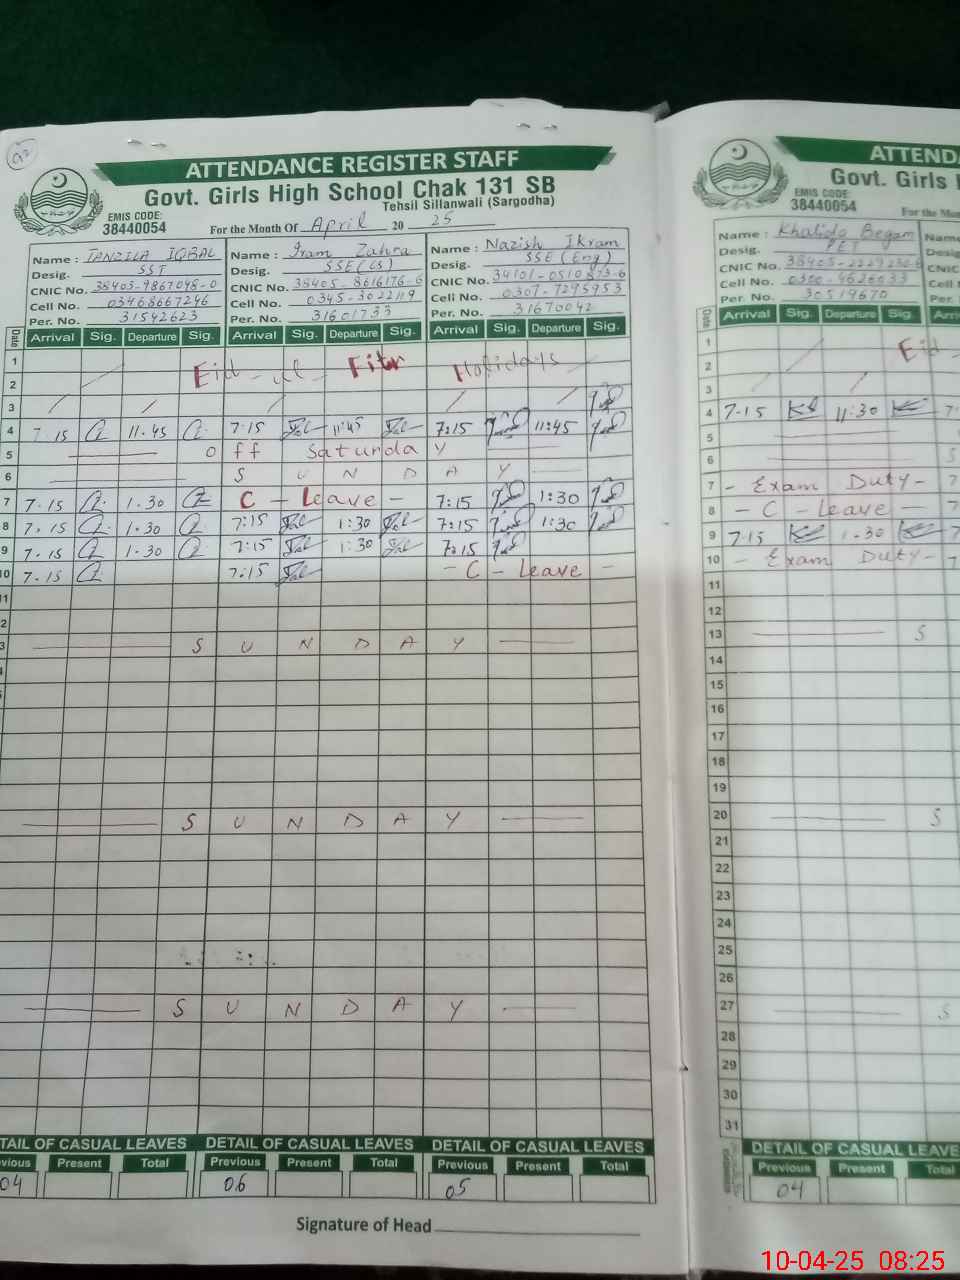 92
ATTENDANCE REGISTER STAFF
Govt. Girls High School Chak 131 SB
Tehsil Sillanwali (Sargodha)
EMIS CODE:
38440054
For the Month Of April 20 25
Name : TANZILA IQBAL Name : Iram Zahra Name : Nazish Ikram
Desig. SST Desig. SSE (CS) Desig. SSE (Eng)
CNIC No. 38403-9867048-0 CNIC No. 38405-8616176-6 CNIC No. 34101-0510873-6
Cell No. 03468667246 Cell No. 0345-3022119 Cell No. 0307-7295953
Per. No. 31542623 Per. No. 31601733 Per. No. 31670042
Date Arrival Sig. Departure Sig. Arrival Sig. Departure Sig. Arrival Sig. Departure Sig.
1 Eid-ul-Fitr Holidays
2
3
4 7.15 11.45 7:15 11:45 7:15 11:45
5 off Saturday
6 SUNDAY
7 7.15 1.30 C - Leave - 7:15 1:30
8 7.15 1.30 7:15 1:30 7:15 1:30
9 7.15 1.30 7:15 1:30 7:15
10 7.15 7:15 - C - Leave -
11
2
3 SUNDAY
SUNDAY
SUNDAY
TAIL OF CASUAL LEAVES DETAIL OF CASUAL LEAVES DETAIL OF CASUAL LEAVES
vious Present Total Previous Present Total Previous Present Total
04 06 05
Signature of Head
ATTENDA
Govt. Girls H
EMIS CODE:
38440054
For the Mon
Name : Khalida Begam Name
Desig. PET Desig.
CNIC No. 38405-2229230-6 CNIC
Cell No. 0300-4626033 Cell
Per. No. 30519670 Per.
Date Arrival Sig. Departure Sig. Arri
1 Eid
2
3
4 7.15 11:30 7
5
6 S
7 - Exam Duty - 7
8 - C - Leave - 7
9 7.15 1.30 7
10 - Exam Duty - 7
11
12
13 S
14
15
16
17
18
19
20 S
21
22
23
24
25
26
27 S
28
29
30
31
DETAIL OF CASUAL LEAVE
Previous Present Total
04
10-04-25 08:25